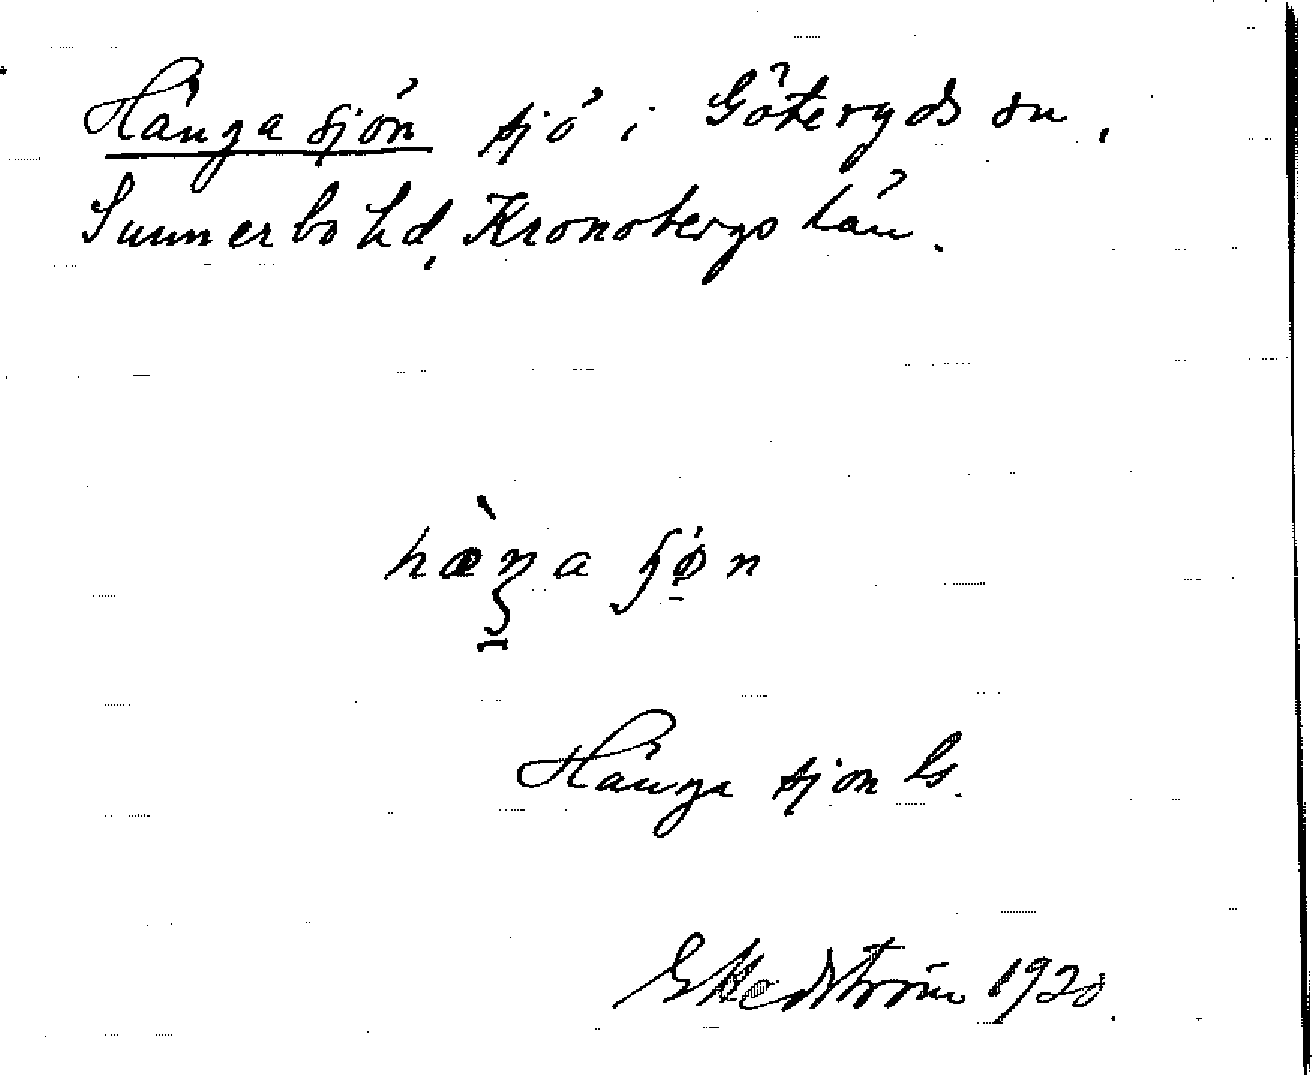 Hängasjön sjö i Göteryds sn,
Sunnerbo hd, Kronobergs län.
hæ̀ŋa ʃø̀n
Hänga sjön Gs.
G Hedström 1920.